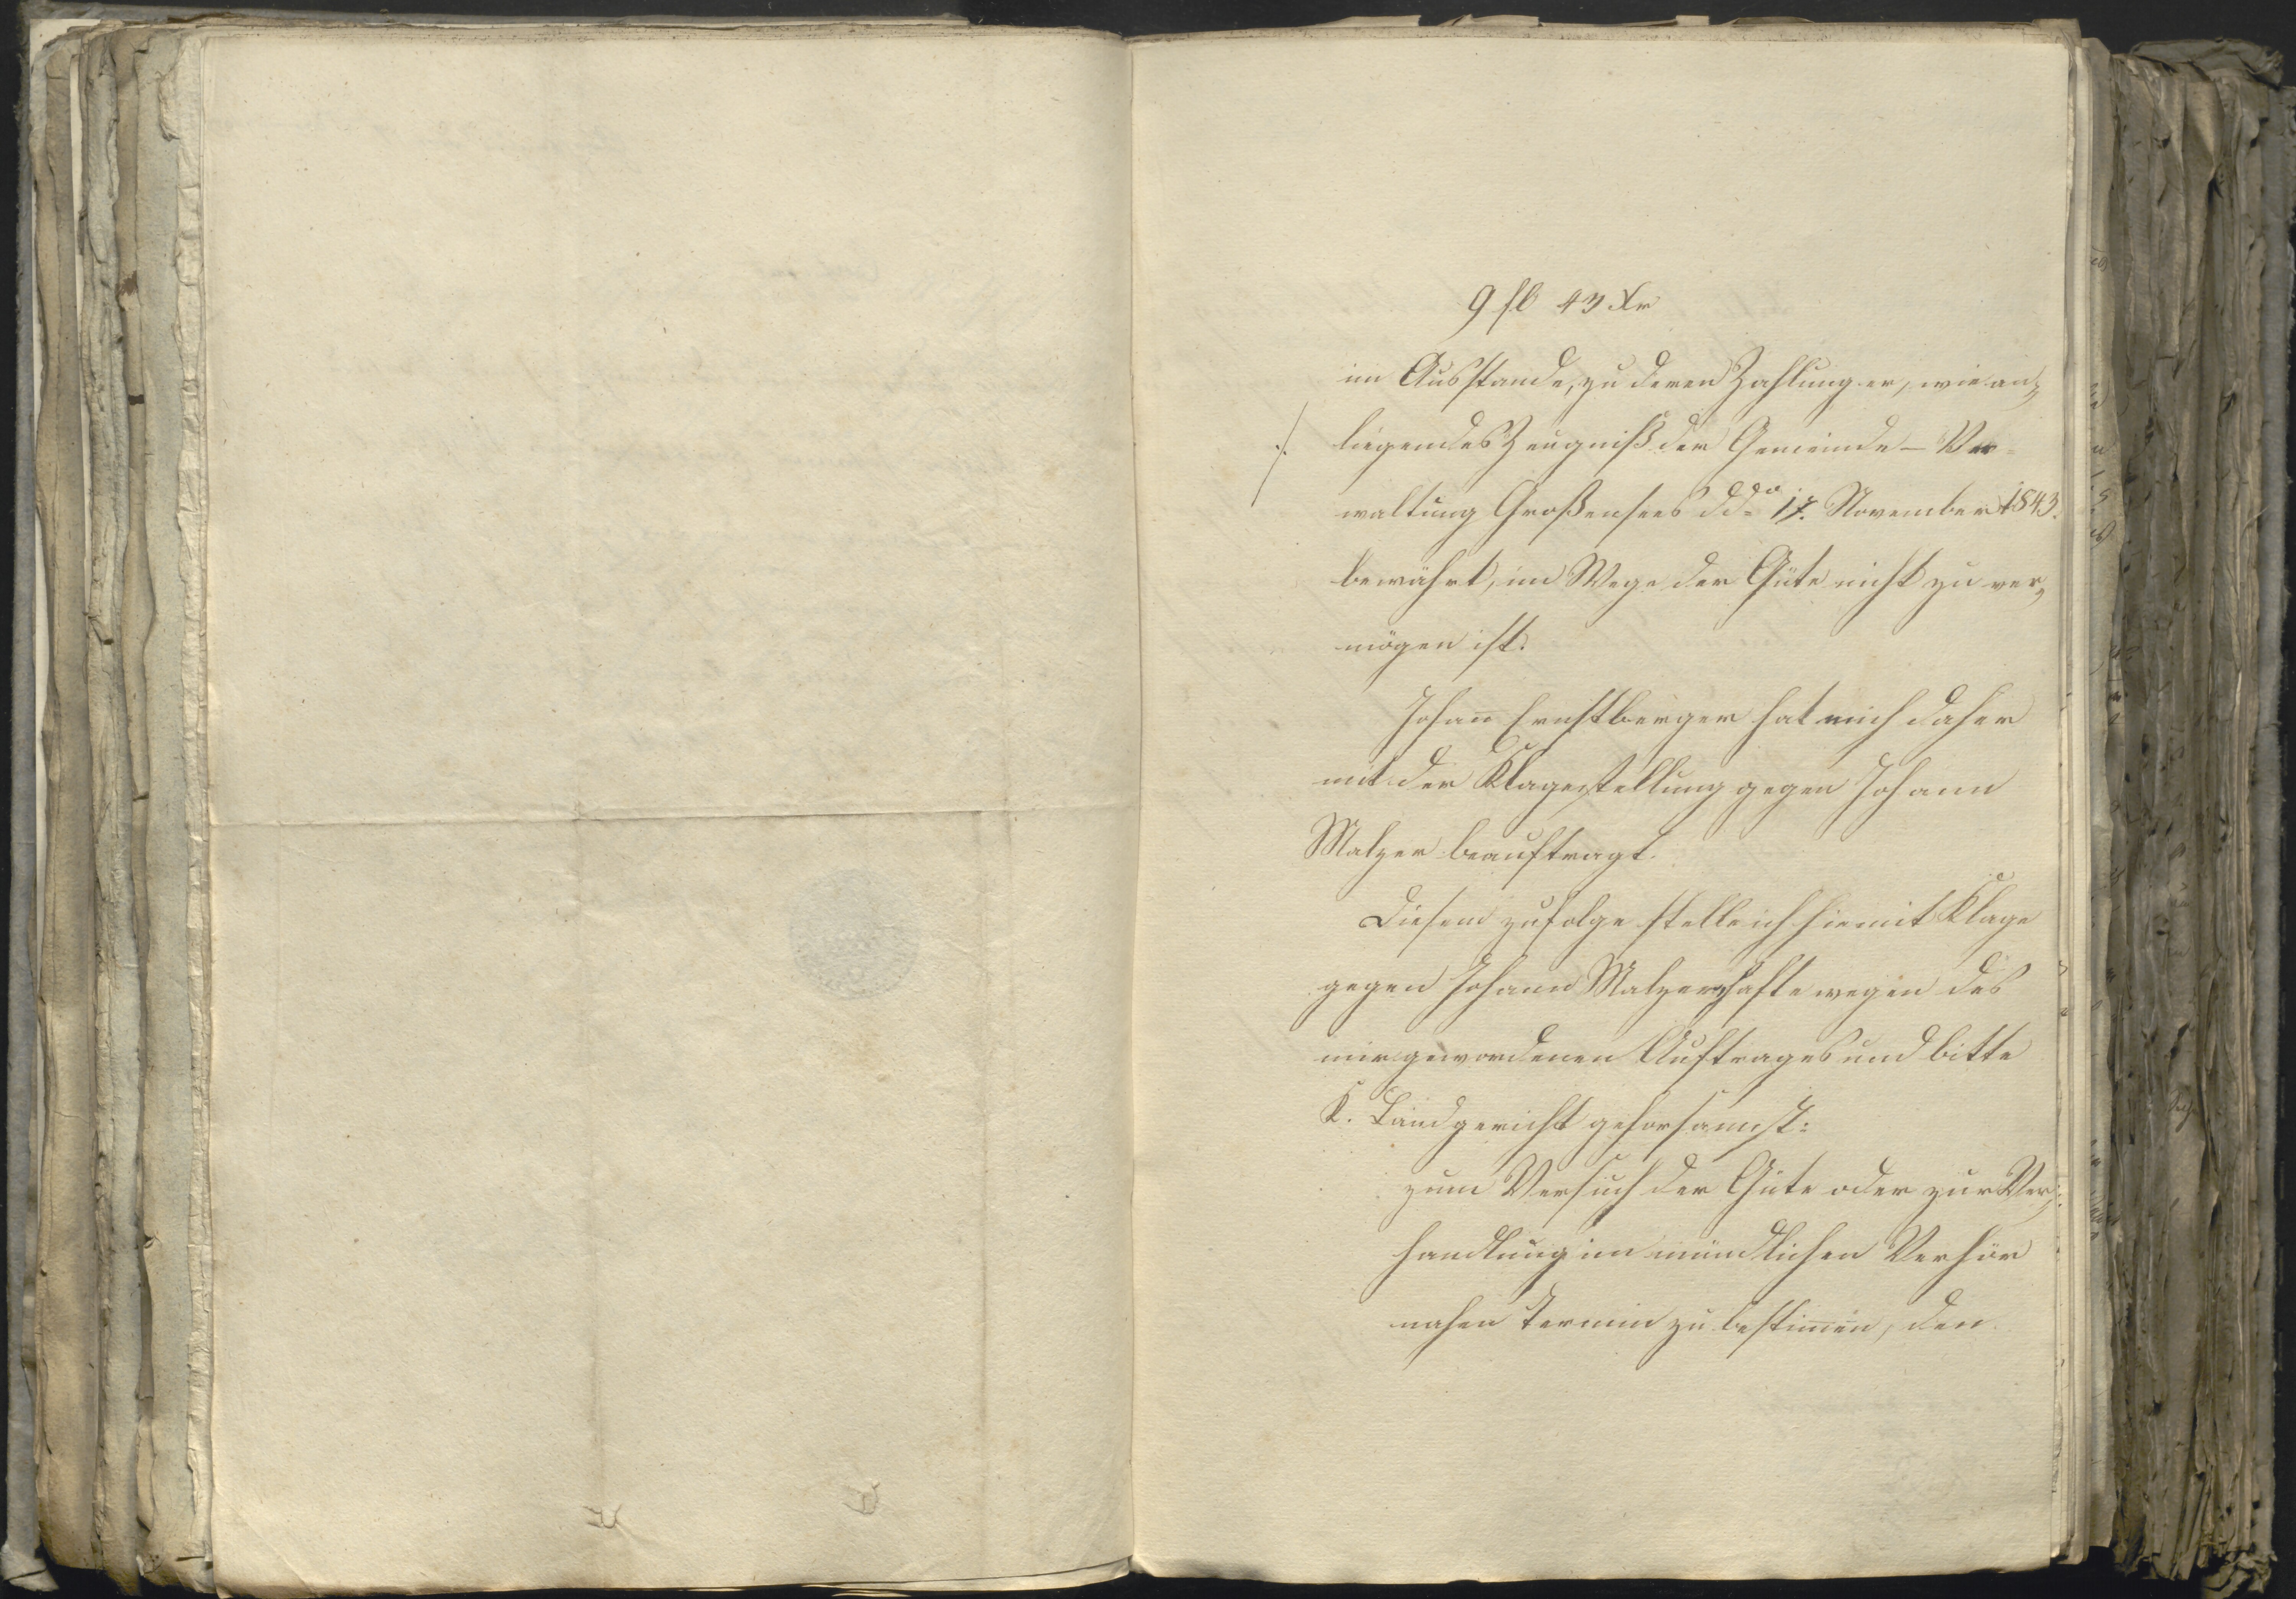 9 fl 43 Xr
im Ausstande, zu deren Zahlung er, wie an=
./. liegendes Zeugniß der Gemeinde-Ver=
waltung Großensees ddo 17. November 1843.
bewährt, im Wege der Güte nicht zu ver=
mögen ist.
Johann Ernstberger hat mich daher
mit der Klagestellung gegen Johann
Malzer beauftragt.
Diesem zufolge stelle ich hiemit Klage
gegen Johann Malzer, hafte wegen des
mir gewordenen Auftrages und bitte
K. Landgericht gehorsamst:
zum Versuch der Güte oder zur Ver=
handlung im mündlichen Verhör
nahen Termin zu bestimmen, den